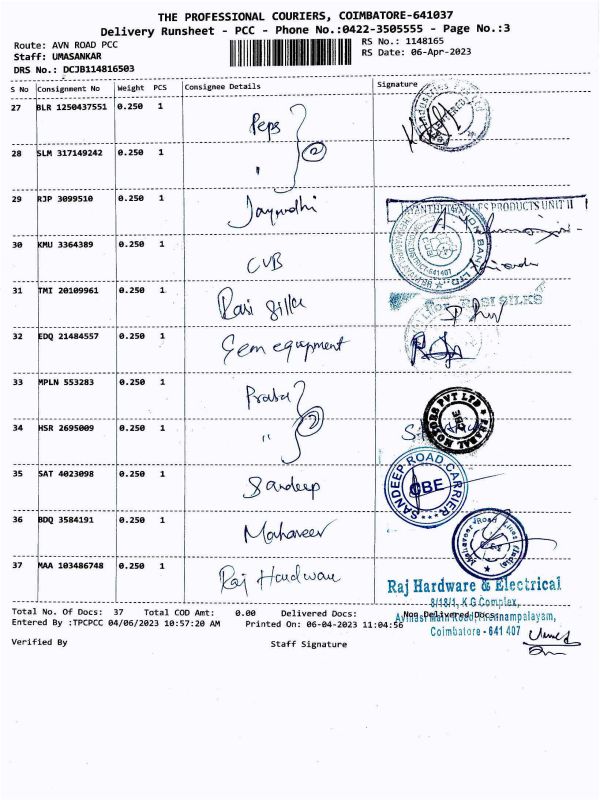 THE PROFESSIONAL COURIERS, COIMBATORE-641037
Delivery Runsheet - PCC - Phone No.:0422-3505555 - Page No.:3
Route: AVN ROAD PCC
RS No.: 1148165
Staff: UMASANKAR
RS Date: 06-Apr-2023
DRS No.: DCJB114816503
S No Consignment No Weight PCS Consignee Details Signature
27 BLR 1250437551 0.250 1 Peps
28 SLM 317149242 0.250 1 " 2
29 RJP 3099510 0.250 1 Jayndhi
JAYANTHI TEXTILES PRODUCTS UNIT II
30 KMU 3364389 0.250 1 CUB
UNION BANK LTD 641407
31 TMI 20109961 0.250 1 Rasi Silks
For RASI SILKS
32 EDQ 21484557 0.250 1 Gem equipment
33 MPLN 553283 0.250 1 Prabal
34 HSR 2695009 0.250 1 " 2
PRABAL MOTORS PVT LTD CBE
35 SAT 4023098 0.250 1 Sandeep
SANDEEP ROAD CARRIER CBE
36 BDQ 3584191 0.250 1 Mahaveer
Mahaveer Road Lines (India)
37 MAA 103486748 0.250 1 Raj Hardware
Raj Hardware & Electrical
8/18/1, K G Complex,
Avinasi Main Road, Thennampalayam,
Coimbatore - 641 407
Total No. Of Docs: 37 Total COD Amt: 0.00 Delivered Docs: Non Delivered Docs:
Entered By :TPCPCC 04/06/2023 10:57:20 AM Printed On: 06-04-2023 11:04:56
Verified By Staff Signature